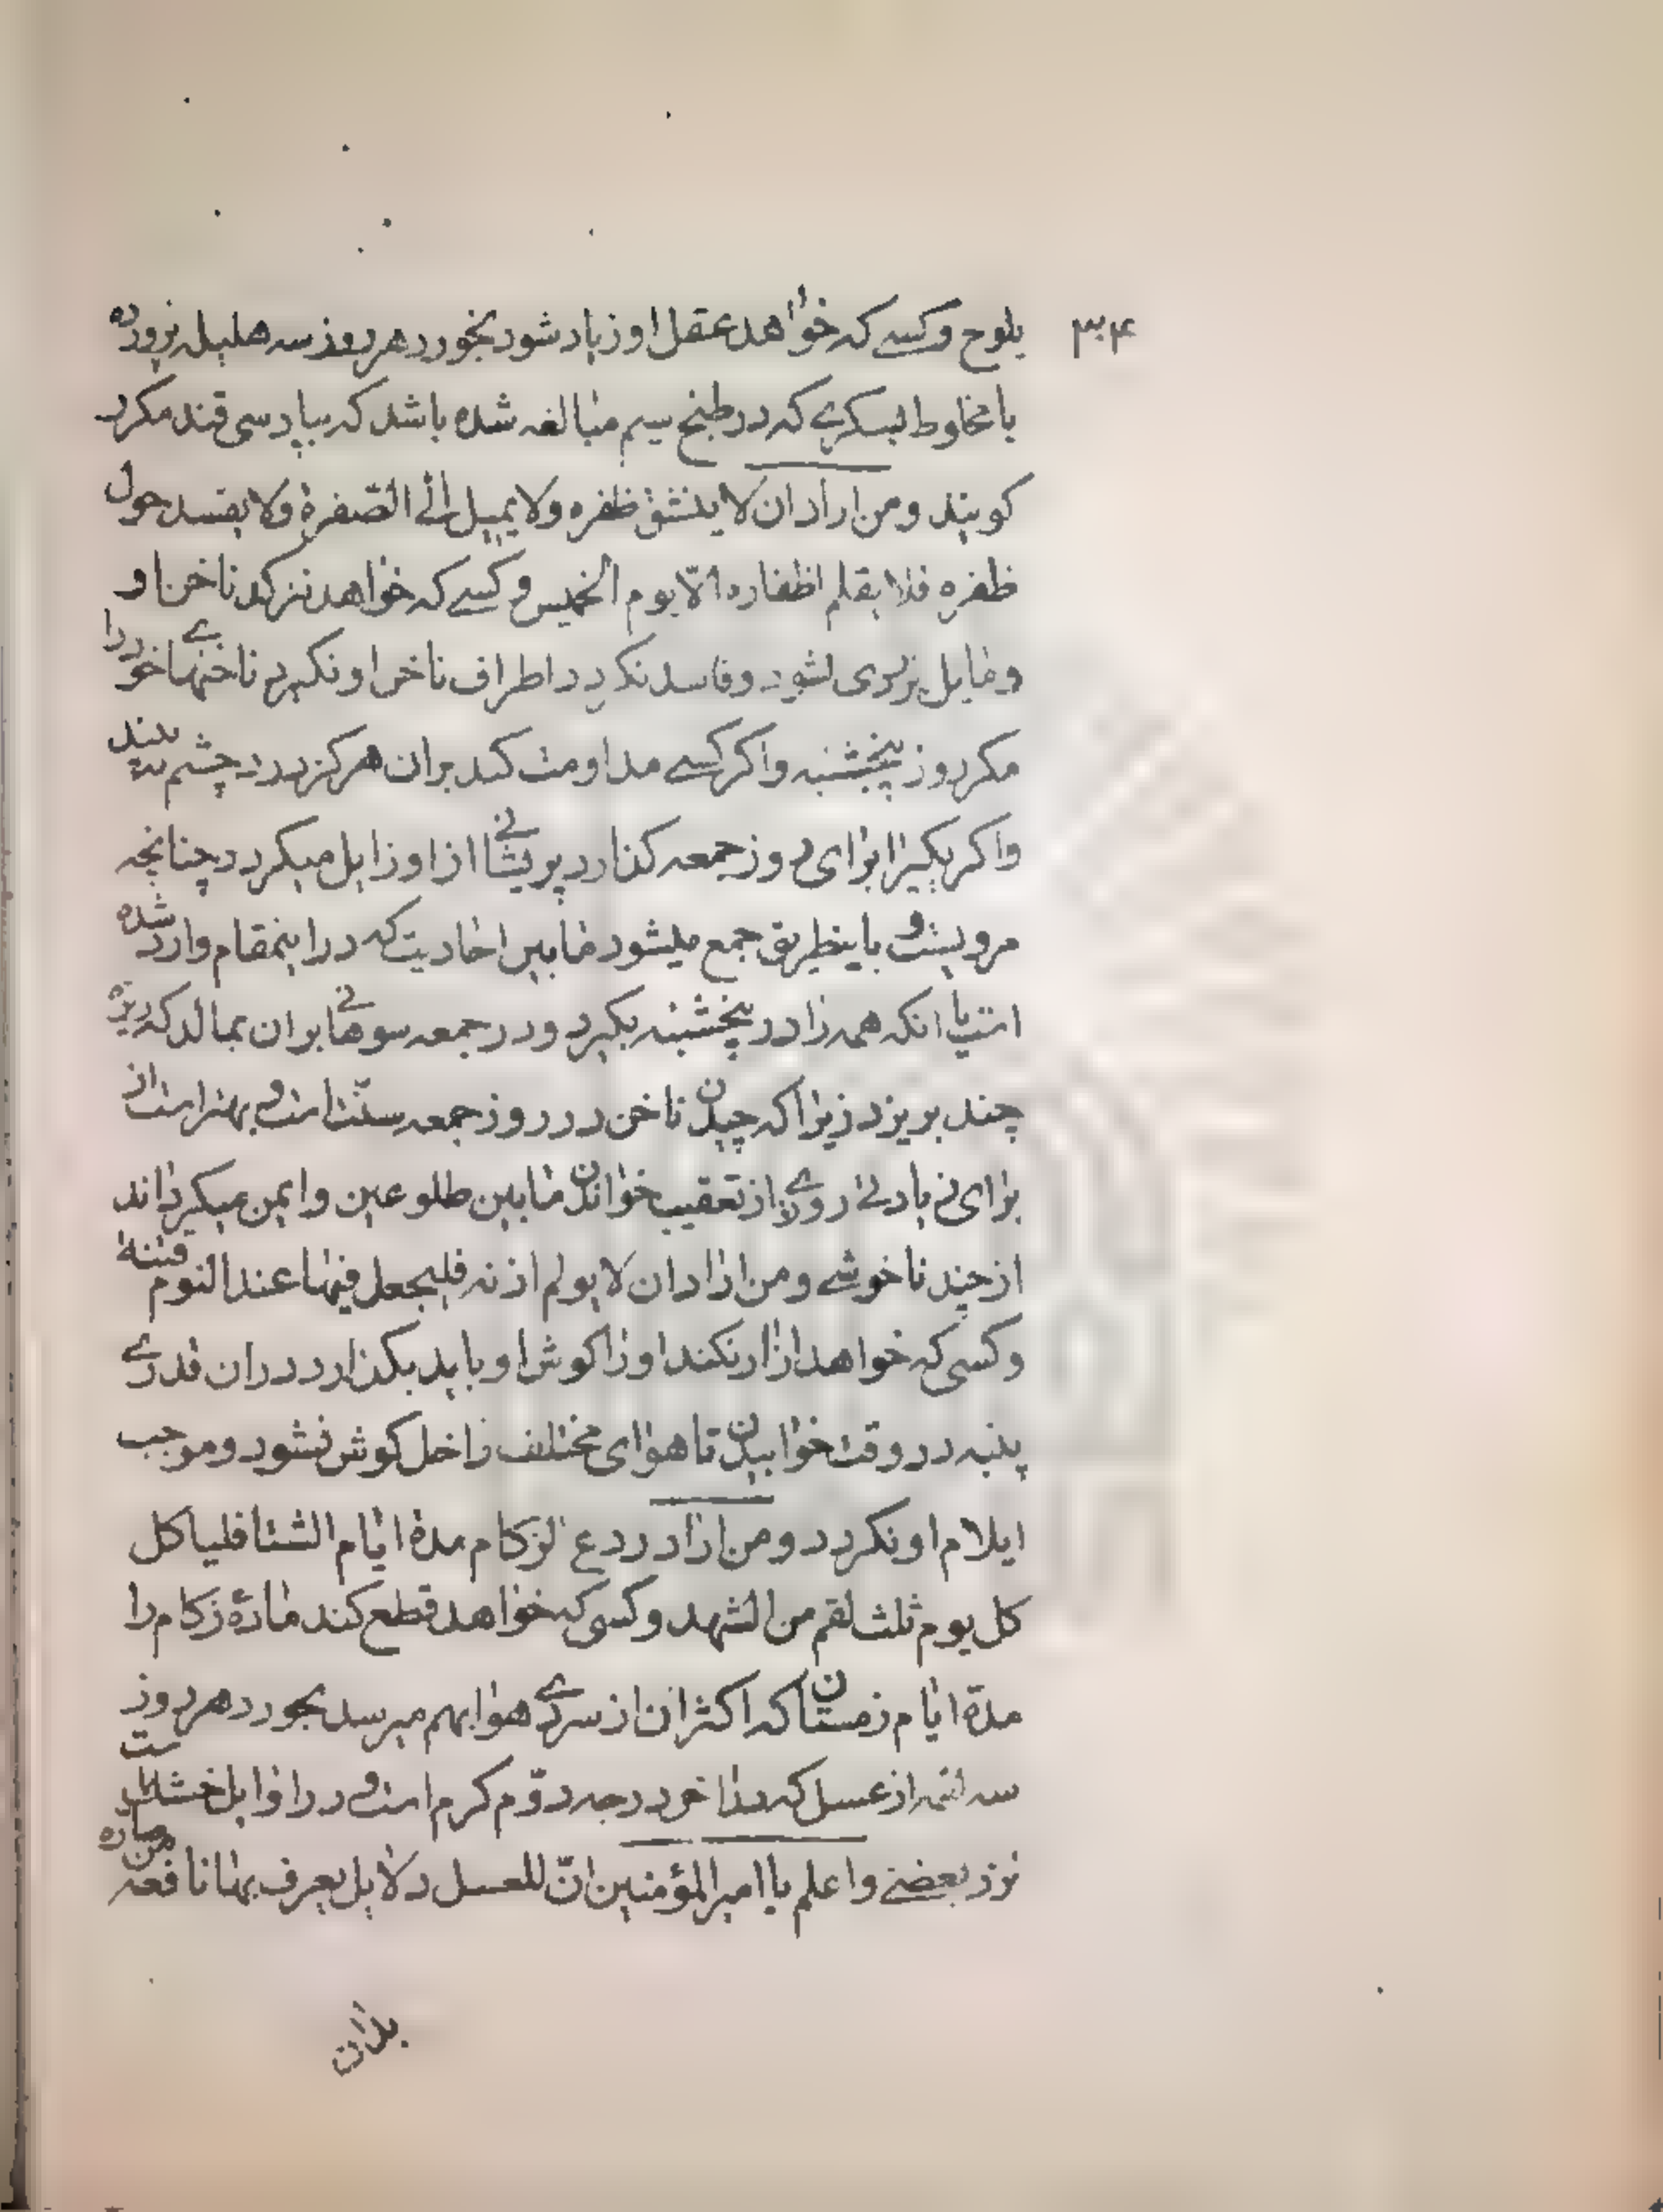 ۳۴
بلوح وکسے که خواهد عقل او زیاد شود بخورد هر روز سه هلیله پرورده
با مخلوط بسکرے که در طبخ سیم مبالغه شده باشد که بپارسی قند مکرر
کویند ومن اراد ان لا ینشق ظفره ولا یمیل الی الصّفرة ولا یفسد حول
ظفره فلا یقلم اظفاره الّا یوم الخمیس وکسے که خواهد نترکد ناخن او
ومایل بزردی نشود وفاسد نکردد اطراف ناخن او نکیرد ناخنهاے خود را
مکر روز پنجشنبه واکر کسے مداومت کند بران هرکز درد چشم نه بیند
واکر یکیرا برای روز جمعه کذارد پریشانے از او زایل میکردد چنانچه
مرویست و باینطریق جمع میشود مابین احادیث که دراینمقام وارد شده
است یا انکه همه را در پنجشنبه بکیرد ودر جمعه سوهانے بران بمالد که ریزه
چند بریزد زیرا که چیدن ناخن در روز جمعه سنّت است و بهتر است از
برای زیادتے روزے از تعقیب خواندن مابین طلوعین وایمن میکرداند
از چند ناخوشے ومن اراد ان لا یولم اذنه فلیجعل فیها عند النوم قطنة
وکسی که خواهد ازار نکند او را کوش او باید بکذارد دران قدرے
پنبه در وقت خوابیدن تا هوای مختلف داخل کوش نشود وموجب
ایلام او نکردد ومن اراد ردع الزکام مدة ایّام الشتا فلیاکل
کل یوم ثلث لقم من الشهد وکسی که خواهد قطع کند مادّۀ زکام را
مدّة ایّام زمستان که اکثر ان از سردے هوا بهم میرسد بخورد هر روز
سه لقمه از عسل که در اخر درجه دوّم کرم است و در اوایل خشک است
نزد بعضے واعلم یا امیرالمؤمنین انّ للعسل دلایل یعرف بها نافعه من ضاره
بدان